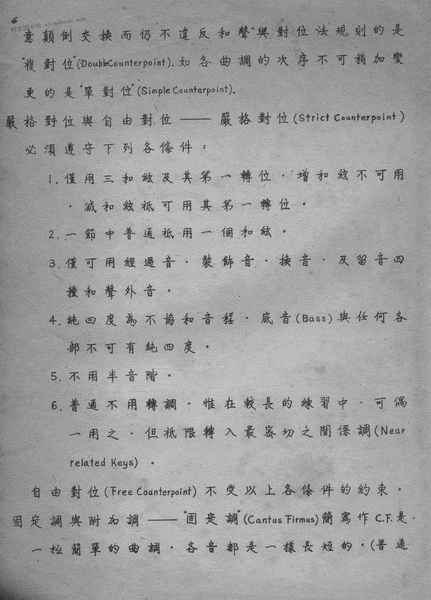 6
意顛倒交換而仍不違反和聲與對位法規則的是
"複對位"(Double Counterpoint). 如各曲調的次序不可稍加變
更的是"單對位"(Simple Counterpoint).
嚴格對位與自由對位——嚴格對位(Strict Counterpoint)
必須遵守下列各條件：
1. 僅用三和絃及其第一轉位，增和絃不可用
，減和絃祗可用其第一轉位。
2. 一節中普通祗用一個和絃。
3. 僅可用經過音、裝飾音、換音、及留音四
種和聲外音。
4. 純四度為不諧和音程，底音(Bass)與任何各
部不可有純四度。
5. 不用半音階。
6. 普通不用轉調，惟在較長的練習中，可偶
一用之，但祗限轉入最密切之關係調(Near
related Keys)。
自由對位(Free Counterpoint)不受以上各條件的約束。
固定調與附加調——"固定調"(Cantus Firmus)簡寫作C.F.是
一種簡單的曲調，各音都是一樣長短的，(普通